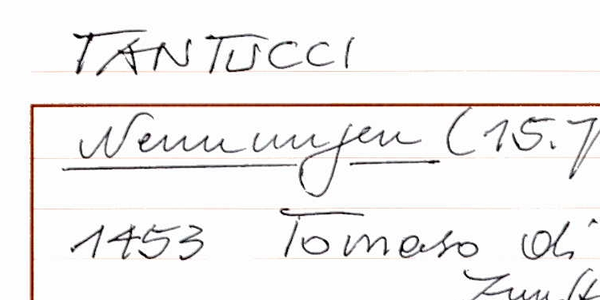 TANTUCCI
Nennungen (15.
1453 Tomaso di